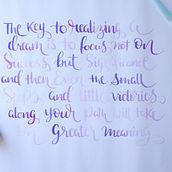 The key to realizing a
dream is to focus not on
Success but significance
and then even the small
Steps and little victories
along your path will take
on Greater meaning